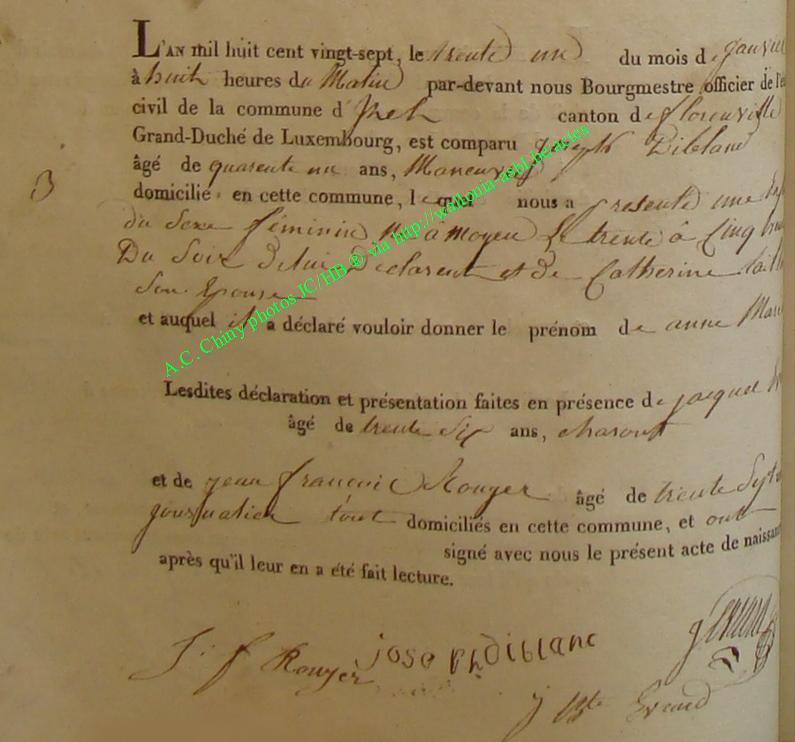 L'AN mil huit cent vingt-sept, le trente un du mois de janvier
à huit heures du Matin par-devant nous Bourgmestre officier de l'é
civil de la commune d'Izel canton de florenville
Grand-Duché de Luxembourg, est comparu joseph Diblanc
âgé de quarente un ans, Maneuvre
3
domicilié en cette commune, lequel nous a presenté une Enf
du Sexe féminin né à moyen le trente à Cinq heu
Du Soir de lui Declarent et de Catherine
Son Epouse
et auquel il a déclaré vouloir donner le prénom de anne Mari
Lesdites déclaration et présentation faites en présence de jacque
âgé de trente Six ans, charon
et de jean françois Rouyer âgé de trente Sept
journalier tout domiciliés en cette commune, et ont
signé avec nous le présent acte de naissan
après qu'il leur en a été fait lecture.
J. f Rouyer joseph diblanc
j Bte Evrard
A.C. Chiny photos JC/HB ® via http://wallonia-asbl.be.actes